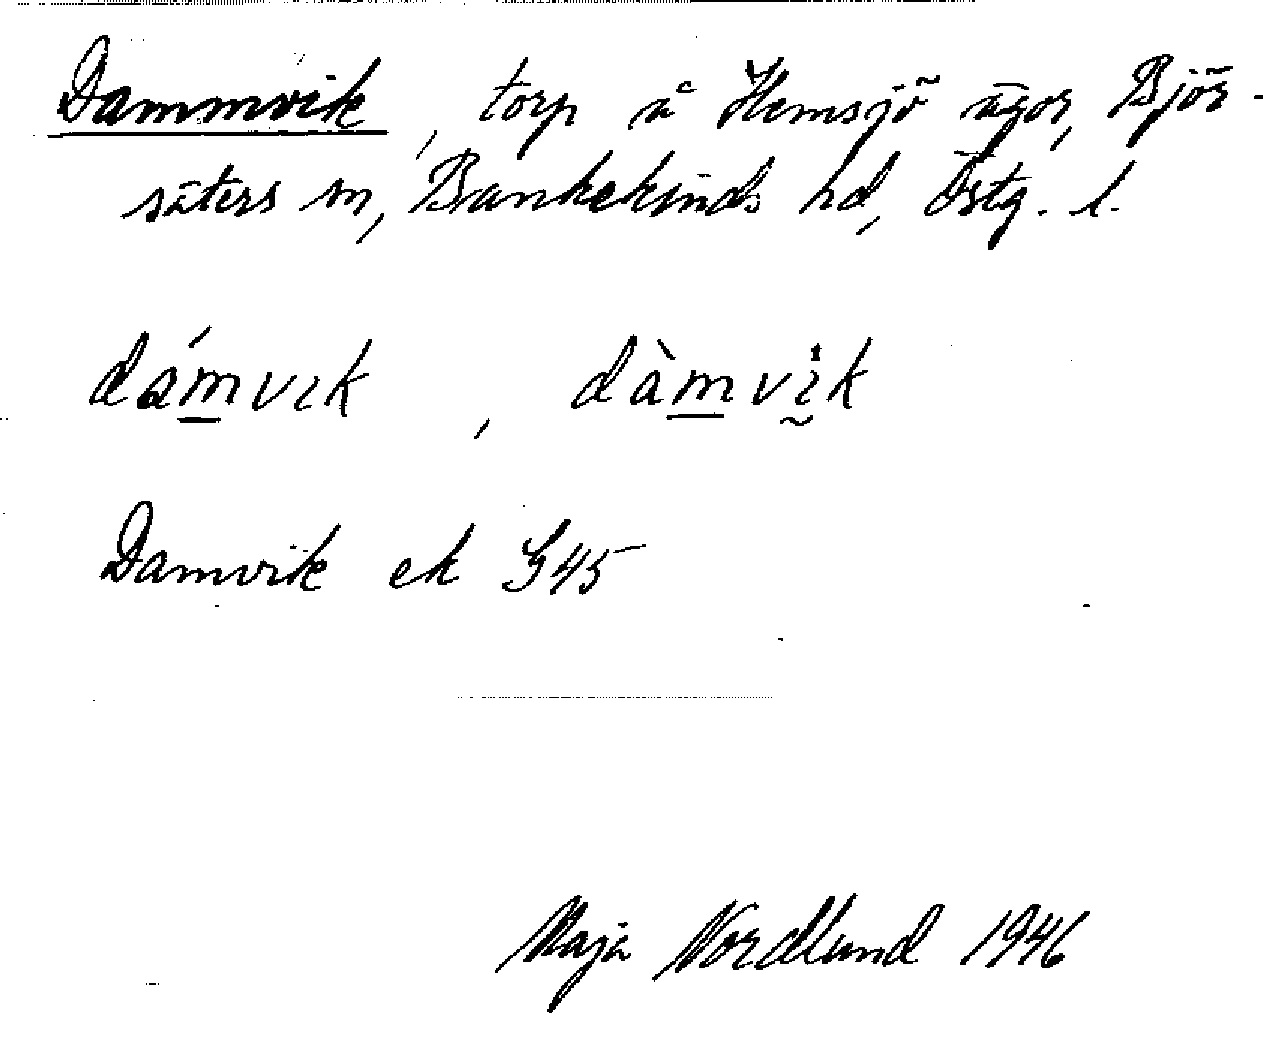 Dammvik, torp å Hemsjö ägor, Björ-
säters sn, Bankekinds hd, Östg. l.
dámvık, dàmvìk
Damvik ek G45
Maja Nordlund 1946